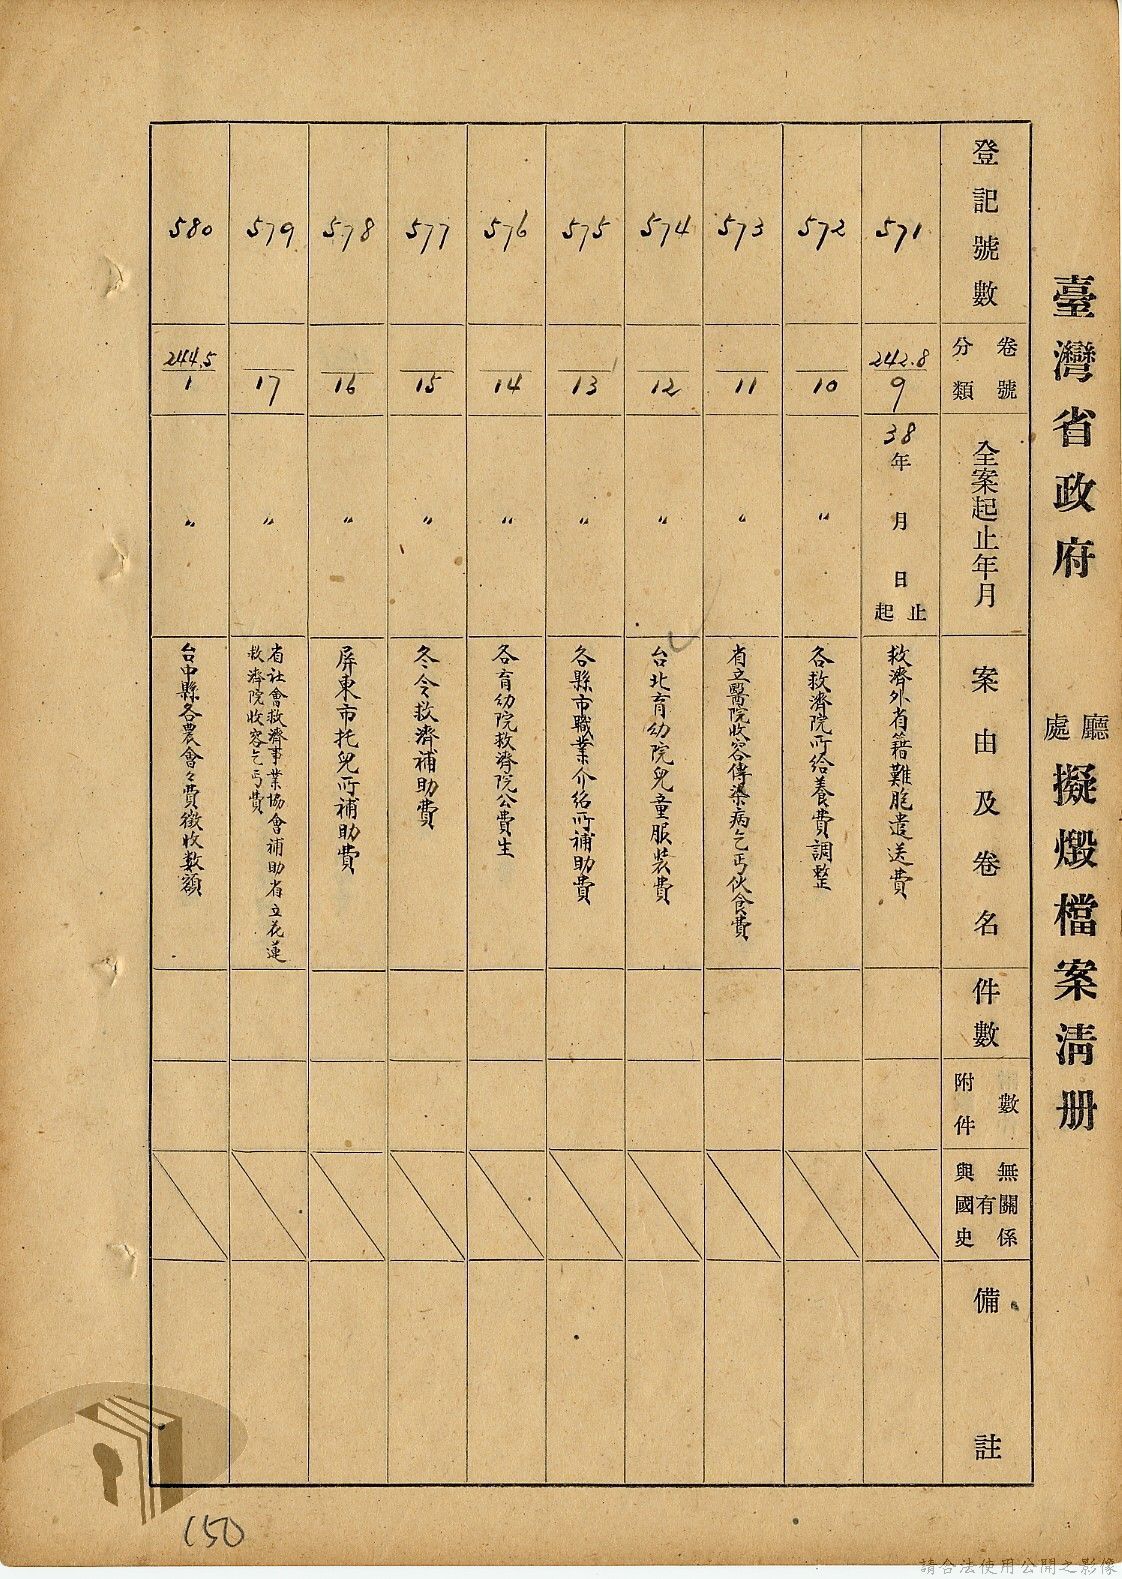 臺灣省政府 廳處 擬燬檔案清册
登記號數
分類 卷號
全案起止年月
案由及卷名
件數
附件 數
與國史 有 無關係
備註
571
242.8
9
38年 月 日 起 止
救濟外省籍難胞遣送費
572
10
〃
各救濟院所給養費調整
573
11
〃
省立醫院收容傳染病乞丐伙食費
574
12
〃
台北育幼院兒童服裝費
575
13
〃
各縣市職業介紹所補助費
576
14
〃
各育幼院救濟院公費生
577
15
〃
冬令救濟補助費
578
16
〃
屏東市托兒所補助費
579
17
〃
省社會救濟事業協會補助省立花蓮
救濟院收容乞丐費
580
244.5
1
〃
台中縣各農會々費徵收数額
150
請合法使用公開之影像